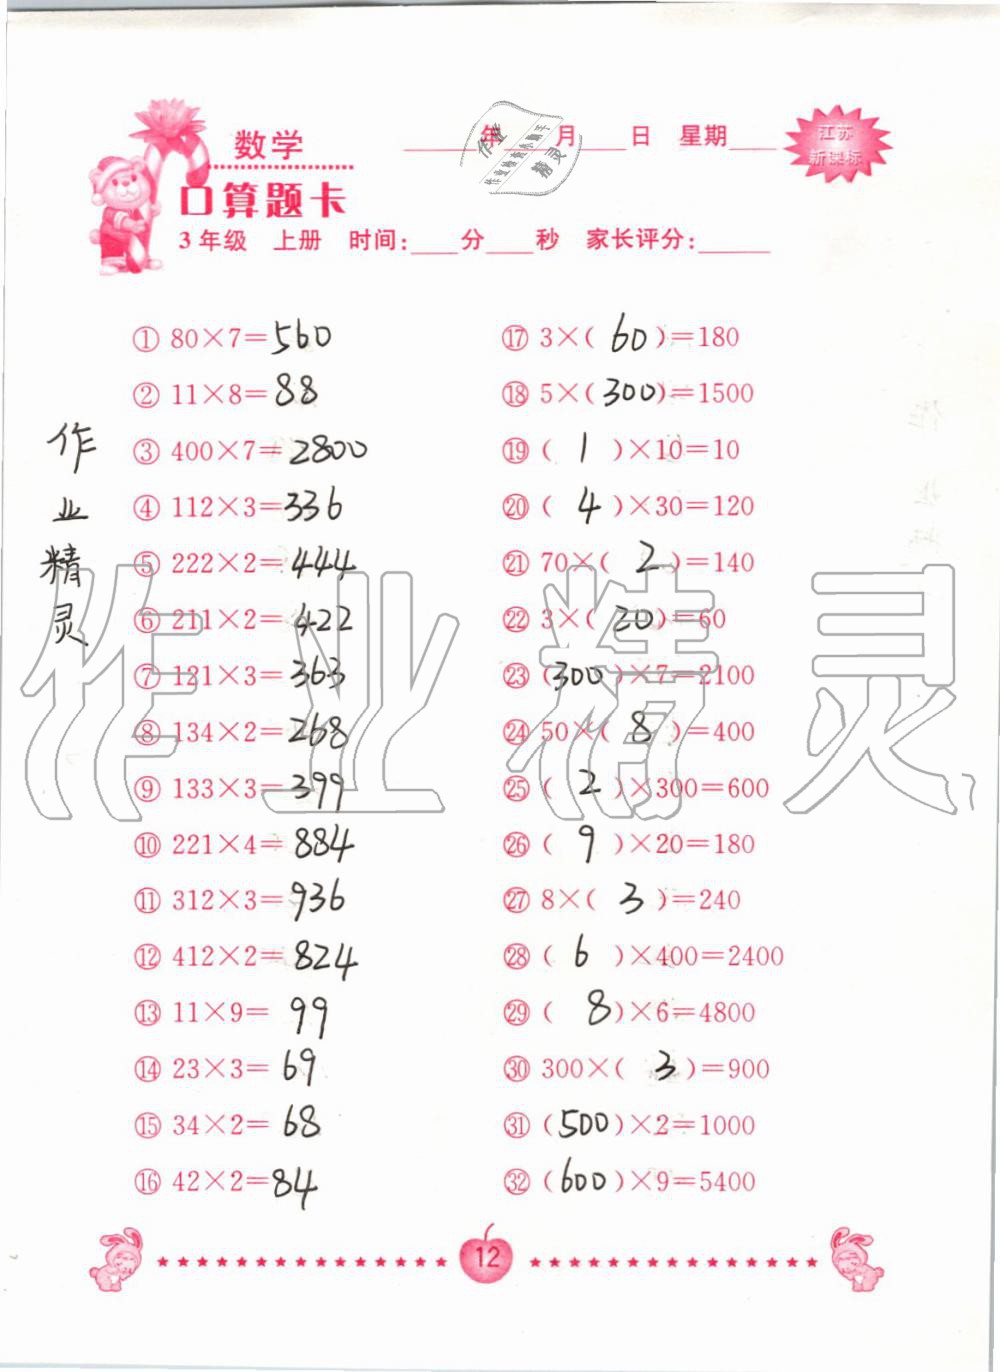 数学
口算题卡
年 月 日 星期
江苏
新课标
3年级 上册 时间: 分 秒 家长评分:
① 80×7=560
② 11×8=88
③ 400×7=2800
④ 112×3=336
⑤ 222×2=444
⑥ 211×2=422
⑦ 121×3=363
⑧ 134×2=268
⑨ 133×3=399
⑩ 221×4=884
⑪ 312×3=936
⑫ 412×2=824
⑬ 11×9=99
⑭ 23×3=69
⑮ 34×2=68
⑯ 42×2=84
⑰ 3×(60)=180
⑱ 5×(300)=1500
⑲ (1)×10=10
⑳ (4)×30=120
㉑ 70×(2)=140
㉒ 3×(20)=60
㉓ (300)×7=2100
㉔ 50×(8)=400
㉕ (2)×300=600
㉖ (9)×20=180
㉗ 8×(3)=240
㉘ (6)×400=2400
㉙ (8)×6=4800
㉚ 300×(3)=900
㉛ (500)×2=1000
㉜ (600)×9=5400
作业精灵
作业精灵
12